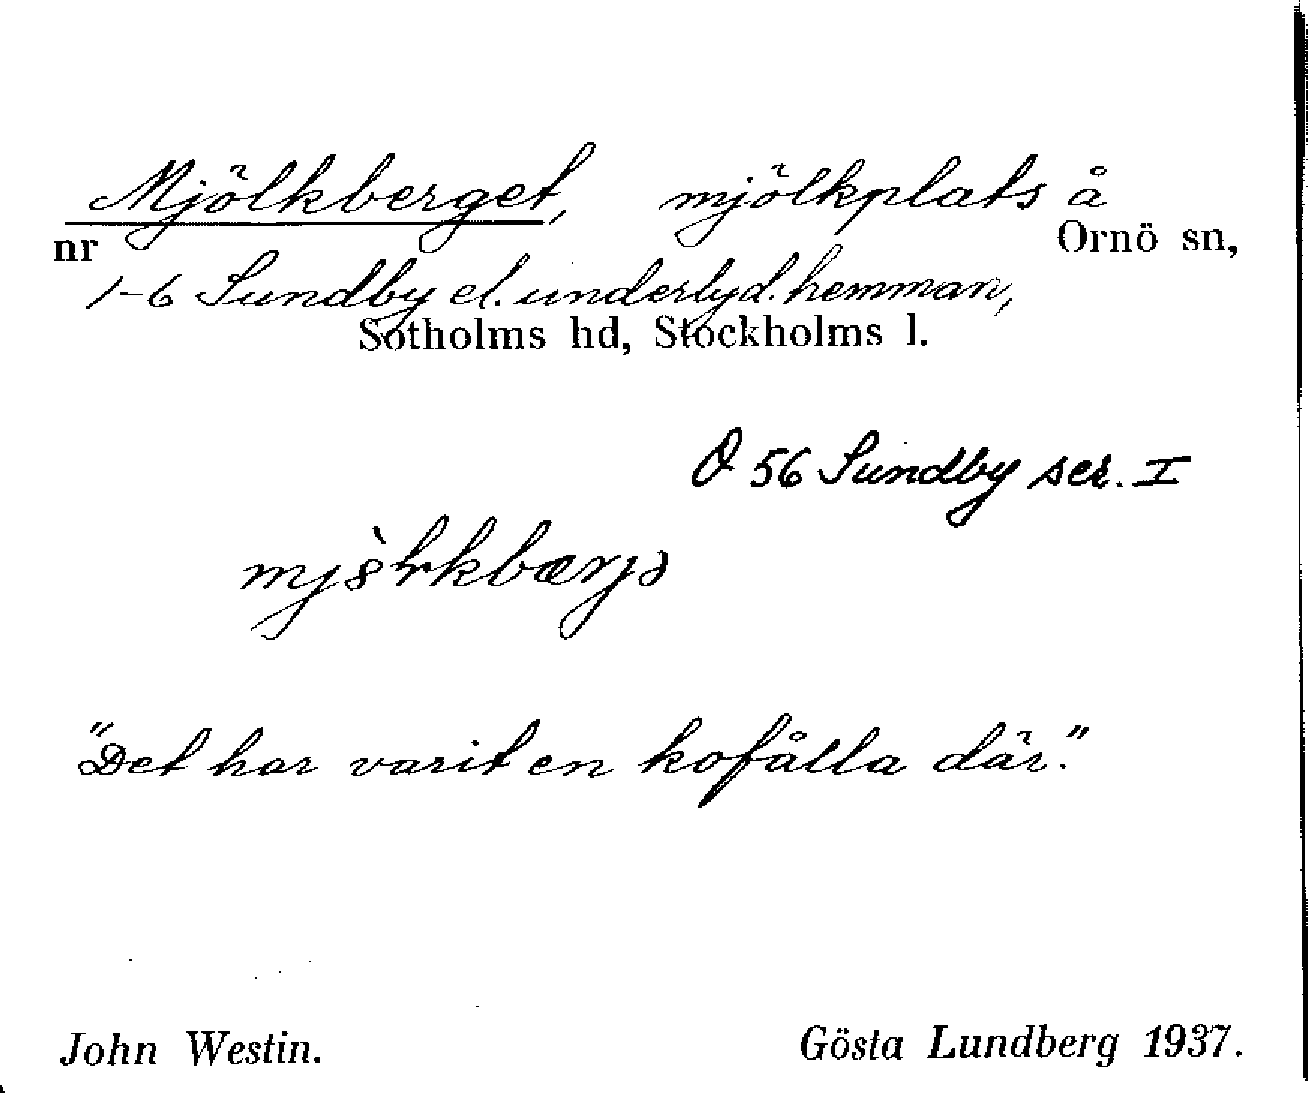 Mjölkberget, mjölkplats å
nr Ornö sn,
1-6 Sundby el. underlyd. hemman,
Sotholms hd, Stockholms l.
O 56 Sundby ser. I
"Det har varit en kofålla där."
John Westin. Gösta Lundberg 1937.